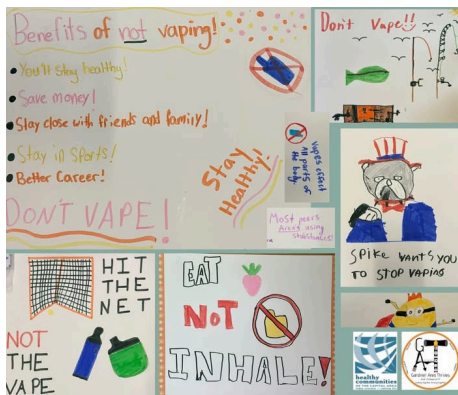 Benefits of not vaping!
You'll stay healthy!
Save money!
Stay close with friends and family!
Stay in Sports!
Better Career!
DON'T VAPE!
Stay
Healthy!
Vapes effect
all parts of
the body
Most peers
Aren't using
substances!
Don't Vape!!
SPIKE WANTS YOU
TO STOP VAPING
HIT
THE
NET
NOT
THE
VAPE
EAT
NOT
INHALE!
healthy
communities
OF THE CAPITAL AREA
GAT
Gardiner Area Thrives